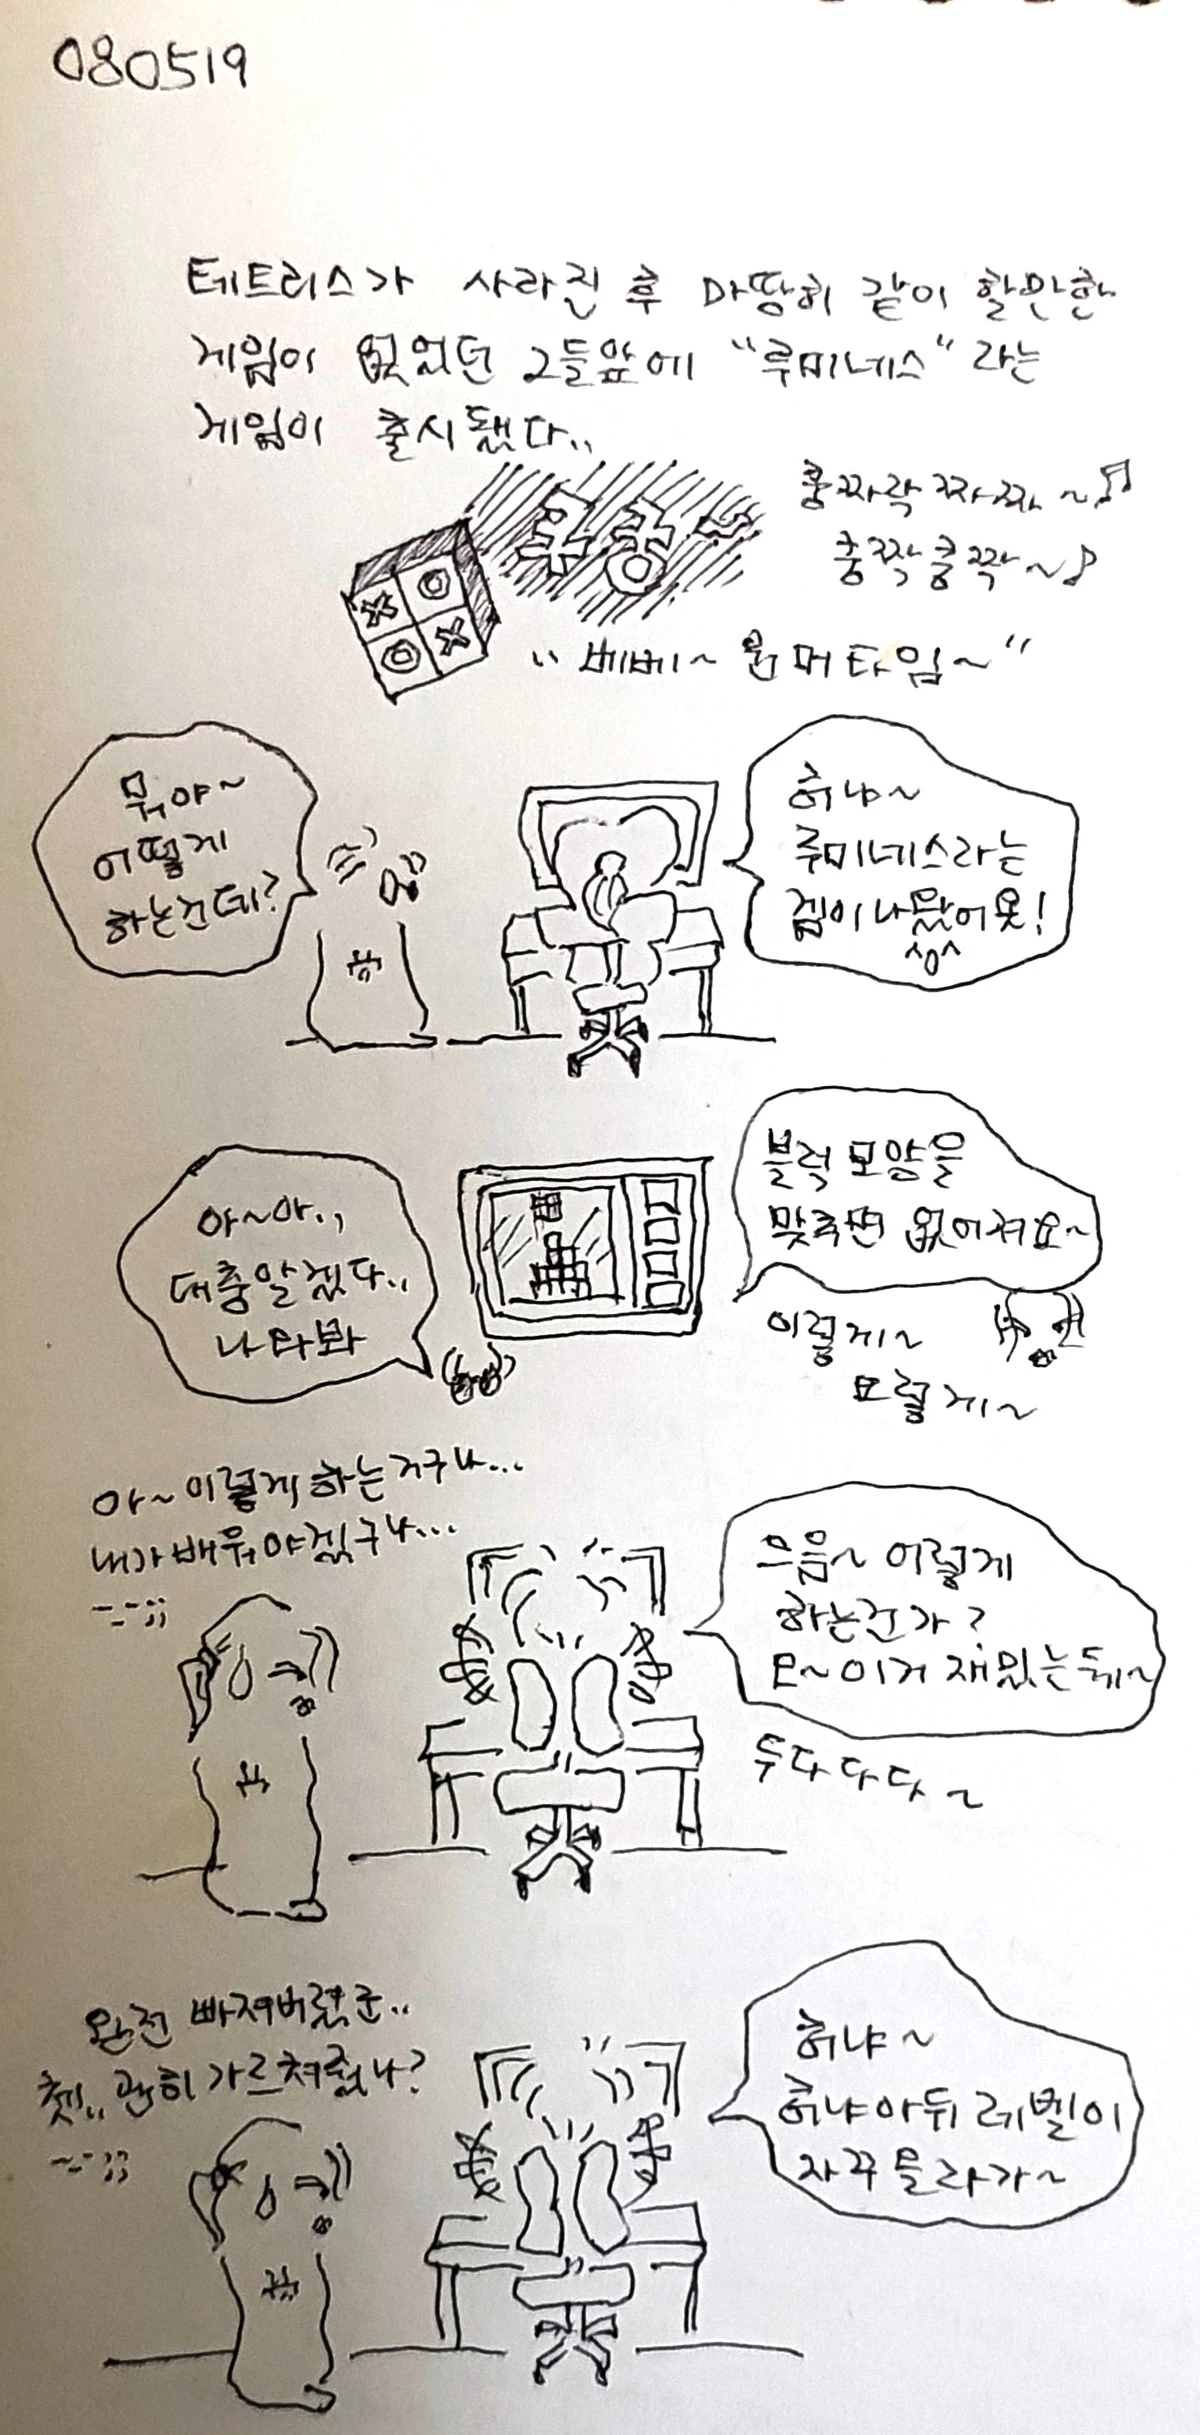 080519
테트리스가 사라진 후 마땅히 같이 할만한
게임이 없었던 그들앞에 "루미네스"라는
게임이 출시됐다..
쿵짜락 짜짜~♫
쿵짝쿵짝~♪
"베베~ 원 머 타임~"
뭐야~
어떻게
하는건데?
허냐~
루미네스라는
겜이 나왔어욧!
^o^
블럭 모양을
맞추면 없어져요~
아~아..
대충알겠다..
나타봐
이렇게~
요렇게~
아~이렇게 하는거구나...
내가배워야겠구나...
-_-;;
으음~ 이렇게
하는건가?
오~이거 재밌는뒈~
두다다다~
완전 빠져버렸군..
쳇.. 괜히 가르쳐줬나?
-_-;;
허냐~
허냐아뒤 레벨이
자꾸 올라가~